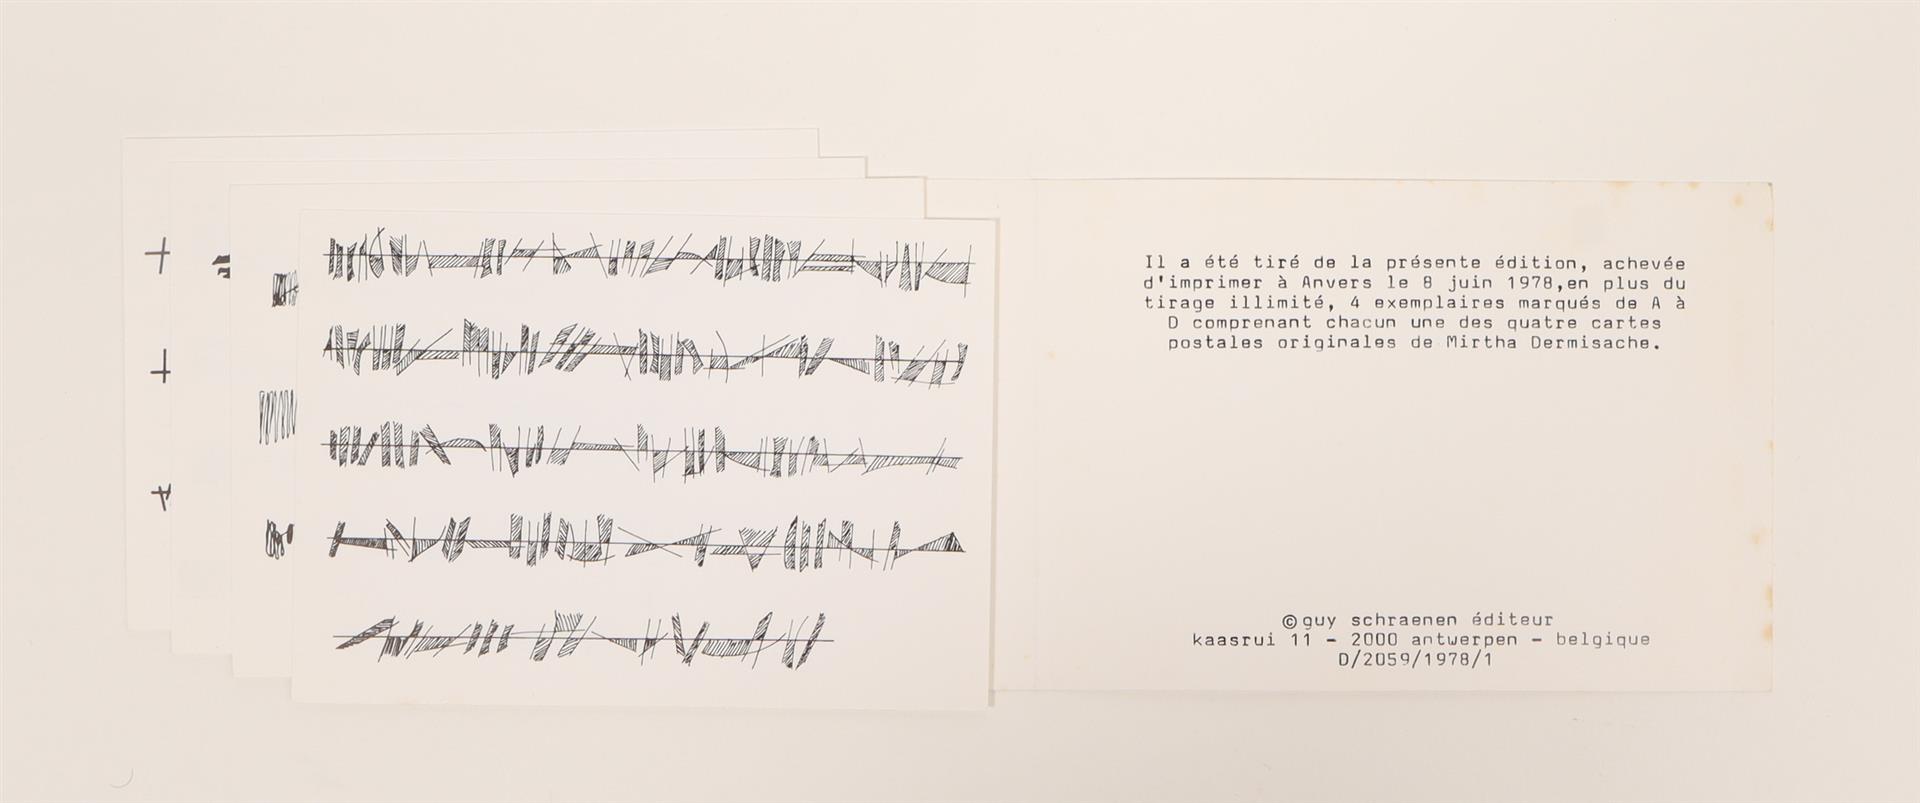 Il a été tiré de la présente édition, achevée
d'imprimer à Anvers le 8 juin 1978,en plus du
tirage illimité, 4 exemplaires marqués de A à
D comprenant chacun une des quatre cartes
postales originales de Mirtha Dermisache.
©guy schraenen éditeur
kaasrui 11 - 2000 antwerpen - belgique
D/2059/1978/1